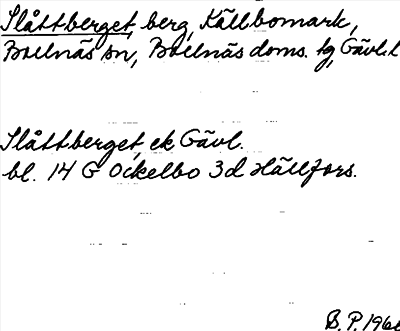 Slåttberget, berg, Källbomark,
Bollnäs sn, Bollnäs doms. tg, Gävl. l
Slåttberget, ek Gävl.
bl. 14 G Ockelbo 3d Hällfors.
B.P. 196